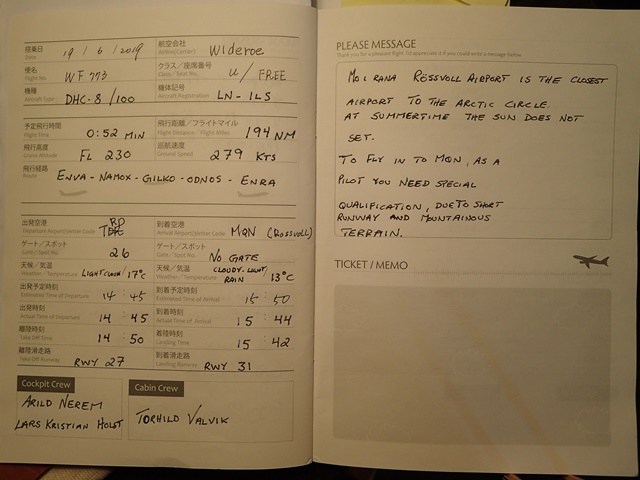 搭乗日 Date 19/6/2019 航空会社 Airline(Carrier) Wideroe
便名 Flight No. WF 773 クラス/座席番号 Class / Seat No. U/ FREE
機種 Aircraft Type DHC-8/100 機体記号 Aircraft Registration LN-ILS
予定飛行時間 Flight Time 0:52 MIN 飛行距離/フライトマイル Flight Distance / Flight Miles 194 NM
飛行高度 Cruise Altitude FL 230 巡航速度 Ground Speed 279 KTS
飛行経路 Route ENVA - NAMOX - GILKO - ODNOS - ENRA
出発空港 Departure Airport/Airport Code TRD 到着空港 Arrival Airport/Airport Code MQN (RØSSVOLL)
ゲート/スポット Gate / Spot No. 26 ゲート/スポット Gate / Spot No. NO GATE
天候/気温 Weather / Temperature LIGHT CLOUD/ 17°C 天候/気温 Weather / Temperature CLOUDY-LIGHT RAIN 13°C
出発予定時刻 Estimated Time of Departure 14:45 到着予定時刻 Estimated Time of Arrival 15:50
出発時刻 Actual Time of Departure 14:45 到着時刻 Actual Time of Arrival 15:44
離陸時刻 Take Off Time 14:50 着陸時刻 Landing Time 15:42
離陸滑走路 Take Off Runway RWY 27 到着滑走路 Landing Runway RWY 31
Cockpit Crew
ARILD NEREM
LARS KRISTIAN HOLST
Cabin Crew
TORHILD VALVIK
PLEASE MESSAGE
Thank you for a pleasant flight. I'd appreciate it if you could write a message below.
MO I RANA RØSSVOLL AIRPORT IS THE CLOSEST
AIRPORT TO THE ARCTIC CIRCLE.
AT SUMMERTIME THE SUN DOES NOT
SET.
TO FLY IN TO MQN, AS A
PILOT YOU NEED SPECIAL
QUALIFICATION, DUE TO SHORT
RUNWAY AND MOUNTAINOUS
TERRAIN.
TICKET / MEMO